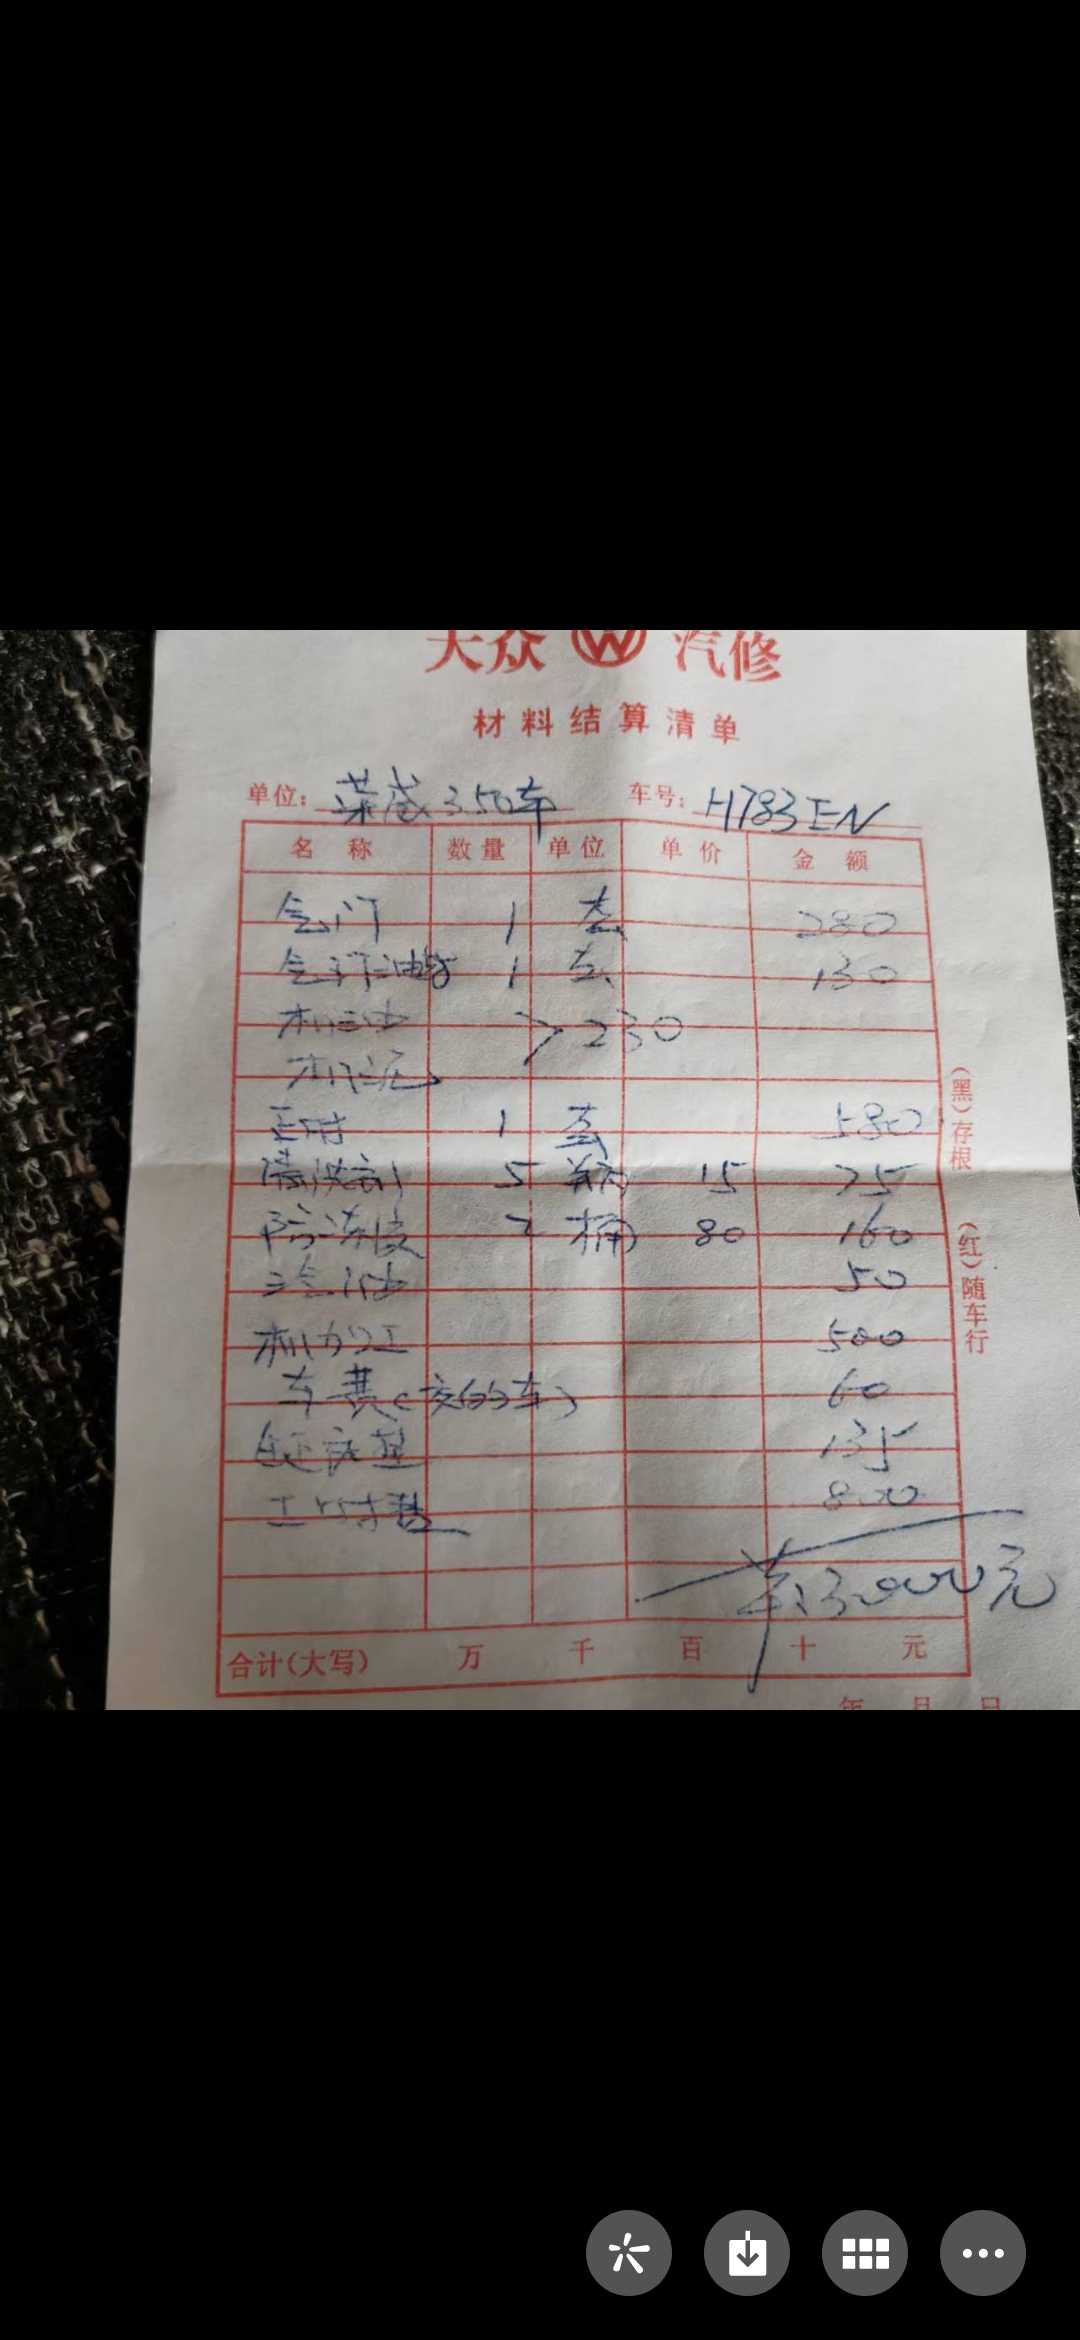 大众 W 汽修
材料结算清单
单位: 荣威350车 车号: H783EN
名称 数量 单位 单价 金额
气门 1 套 280
气门油封 1 套 130
机油 > 230
机滤
1 套 580
清洗剂 5 瓶 15 75
防冻液 2 桶 80 160
50
机加工 500
车费( 的车) 60
135
工时费 800
共:3000元
合计(大写) 万 千 百 十 元
年 月 日
(黑)存根
(红)随车行